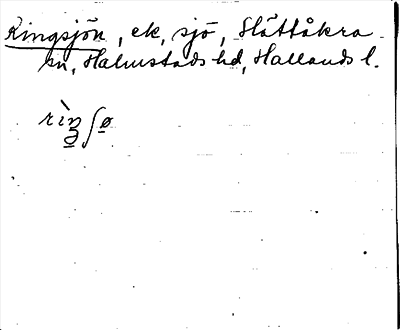 Ringsjön, ek, sjö, Slättåkra
sn, Halmstads hd, Hallands l.
rìŋʃø